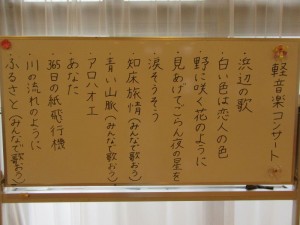 軽音楽コンサート
・浜辺の歌
・白い色は恋人の色
・野に咲く花のように
・見あげてごらん夜の星を
・涙そうそう
・知床旅情(みんなで歌おう)
・青い山脈(みんなで歌おう)
・アロハオエ
・あなた
・365日の紙飛行機
・川の流れのように
・ふるさと(みんなで歌おう)